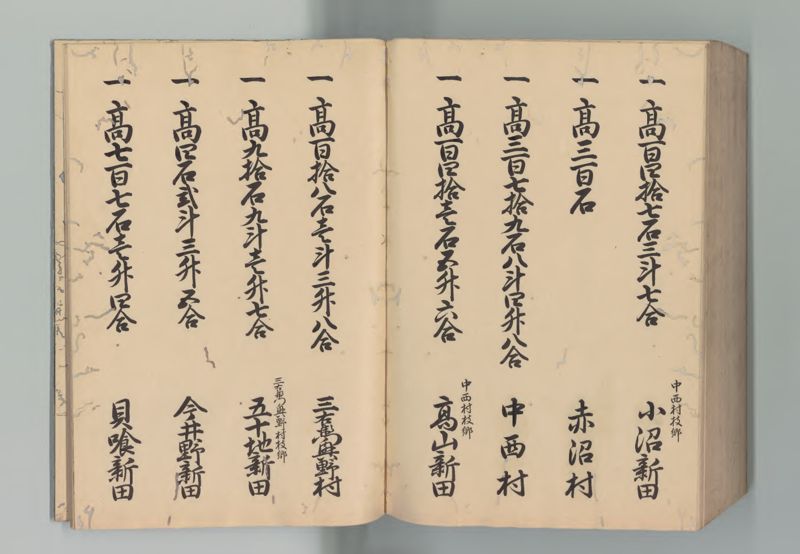 一 高百四拾七石三斗七合
中西村枝郷
小沼新田
一 高三百石
赤沼村
一 高三百七拾九石八斗四升八合
中西村
一 高百四拾壱石五升六合
中西村枝郷
高山新田
一 高百拾八石壱斗三升八合
三右衛門興野村
一 高九拾石九斗壱升七合
三右衛門興野村枝郷
五十地新田
一 高四石弐斗三升五合
今井野新田
一 高七百七石壱升四合
貝喰新田